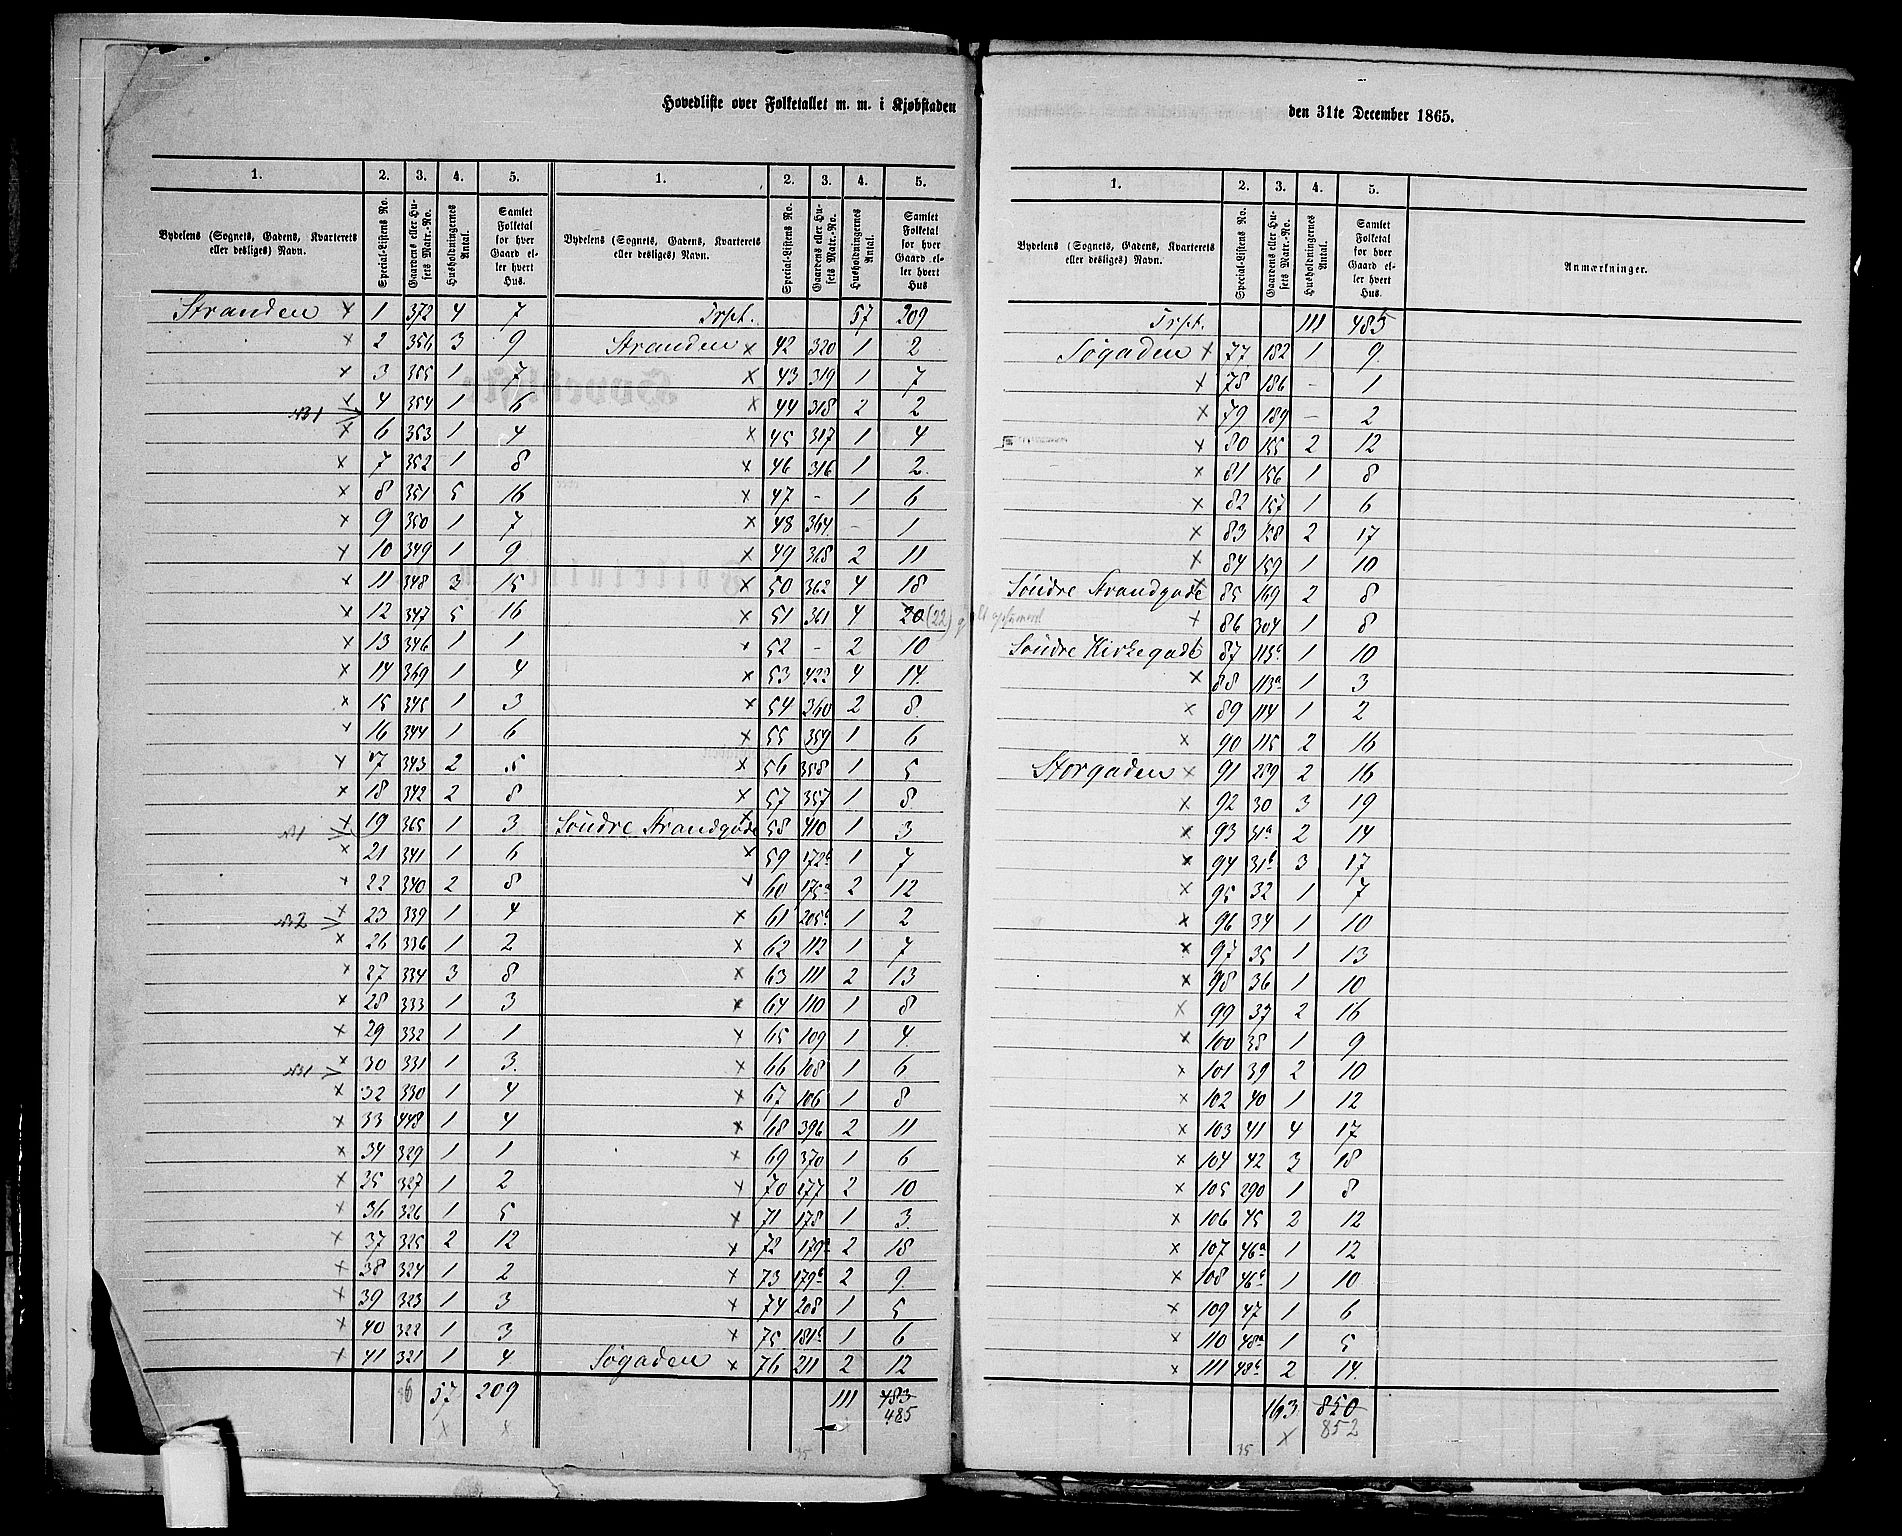 Hovedliste over Folketallet m. m. i Kjøbstaden
den 31te December 1865.
1. 2. 3. 4. 5.
Bydelens (Sognets, Gadens, Kvarterets eller desliges) Navn. Special-Listens No. Gaardens eller Husets Matr.-No. Husholdningernes Antal. Samlet Folketal for hver Gaard eller hvert Hus.
Stranden × 1 372 4 7
× 2 356 3 9
× 3 355 1 7
× 4 354 1 6
× 6 353 1 4
× 7 352 1 8
× 8 351 5 16
× 9 350 1 7
× 10 349 1 9
× 11 348 3 15
× 12 347 5 16
× 13 346 1 1
× 14 369 1 4
× 15 345 1 3
× 16 344 1 6
× 17 343 2 5
× 18 342 2 8
× 19 365 1 3
× 21 341 1 6
× 22 340 2 8
× 23 339 1 4
× 26 336 1 2
× 27 334 3 8
× 28 333 1 3
× 29 332 1 1
× 30 331 1 3.
× 32 330 1 4
× 33 448 1 4
× 34 329 1 1
× 35 327 1 2
× 36 326 1 5
× 37 325 2 12
× 38 324 1 2
× 39 323 1 3
× 40 322 1 3
× 41 321 1 4
57 209
1. 2. 3. 4. 5.
Bydelens (Sognets, Gadens, Kvarterets eller desliges) Navn. Special-Listens No. Gaardens eller Husets Matr.-No. Husholdningernes Antal. Samlet Folketal for hver Gaard eller hvert Hus
Trpt. 57 209
Stranden × 42 320 1 2
× 43 319 1 7
× 44 318 2 2
× 45 317 1 4
× 46 316 1 2.
× 47 - 1 6
× 48 364 - 1
× 49 318 2 11
× 50 362 4 18
× 51 361 4 20 (22)
× 52 - 2 10
× 53 422 4 14.
× 54 360 2 8.
× 55 359 1 6
× 56 358 1 5
× 57 357 1 8.
Söndre Strandgade × 58 410 1 3
× 59 172b 1 7
× 60 175a 2 12
× 61 205b 1 2
× 62 112 1 7
× 63 111 2 13
× 64 110 1 8
× 65 109 1 4.
× 66 108 1 6
× 67 106 1 8
× 68 396 2 11
× 69 370 1 6
× 70 177 2 10
× 71 178 1 3.
× 72 179a 2 18
× 73 179b 2 9.
× 74 208 1 5
× 75 181b 1 6
Søgaden × 76 211 2 12
111 483
485
35
1. 2. 3. 4. 5.
Bydelens (Sognets, Gadens, Kvarterets eller desliges) Navn. Special-Listens No. Gaardens eller Husets Matr.-No. Husholdningernes Antal. Samlet Folketal for hver Gaard eller hvert Hus. Anmærkninger.
Trpt. 111 485
Søgaden × 77 182 1 9
× 78 186 - 1
× 79 189 - 2
× 80 155 2 12
× 81 156 1 8
× 82 157 1 6
× 83 158 2 17
× 84 159 1 10
Söndre Strandgade × 85 169 2 8
× 86 304 1 8
Söndre Kirkegade 87 113b 1 10
× 88 113a 1 3
× 89 114 1 2
× 90 115 2 16
Storgaden × 91 259 2 16
× 92 30 3 19
× 93 31a 2 14
× 94 31b 3 17
× 95 32 1 7
× 96 34 1 10
× 97 35 1 13
× 98 36 1 10
× 99 37 2 16
× 100 38 1 9
× 101 39 2 10
× 102 40 1 12
× 103 41 4 17
× 104 42 3 18
× 105 290 1 8
× 106 45 2 12
× 107 46a 1 12
× 108 46b 1 10
× 109 47 1 6
× 110 48a 1 5
× 111 48b 2 14.
163 850
852
35